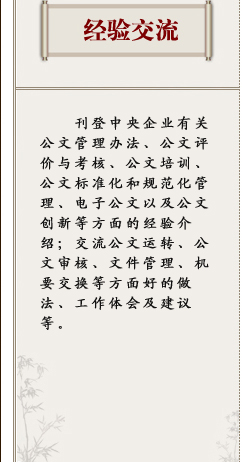 经验交流
刊登中央企业有关
公文管理办法、公文评
价与考核、公文培训、
公文标准化和规范化管
理、电子公文以及公文
创新等方面的经验介
绍；交流公文运转、公
文审核、文件管理、机
要交换等方面好的做
法、工作体会及建议
等。